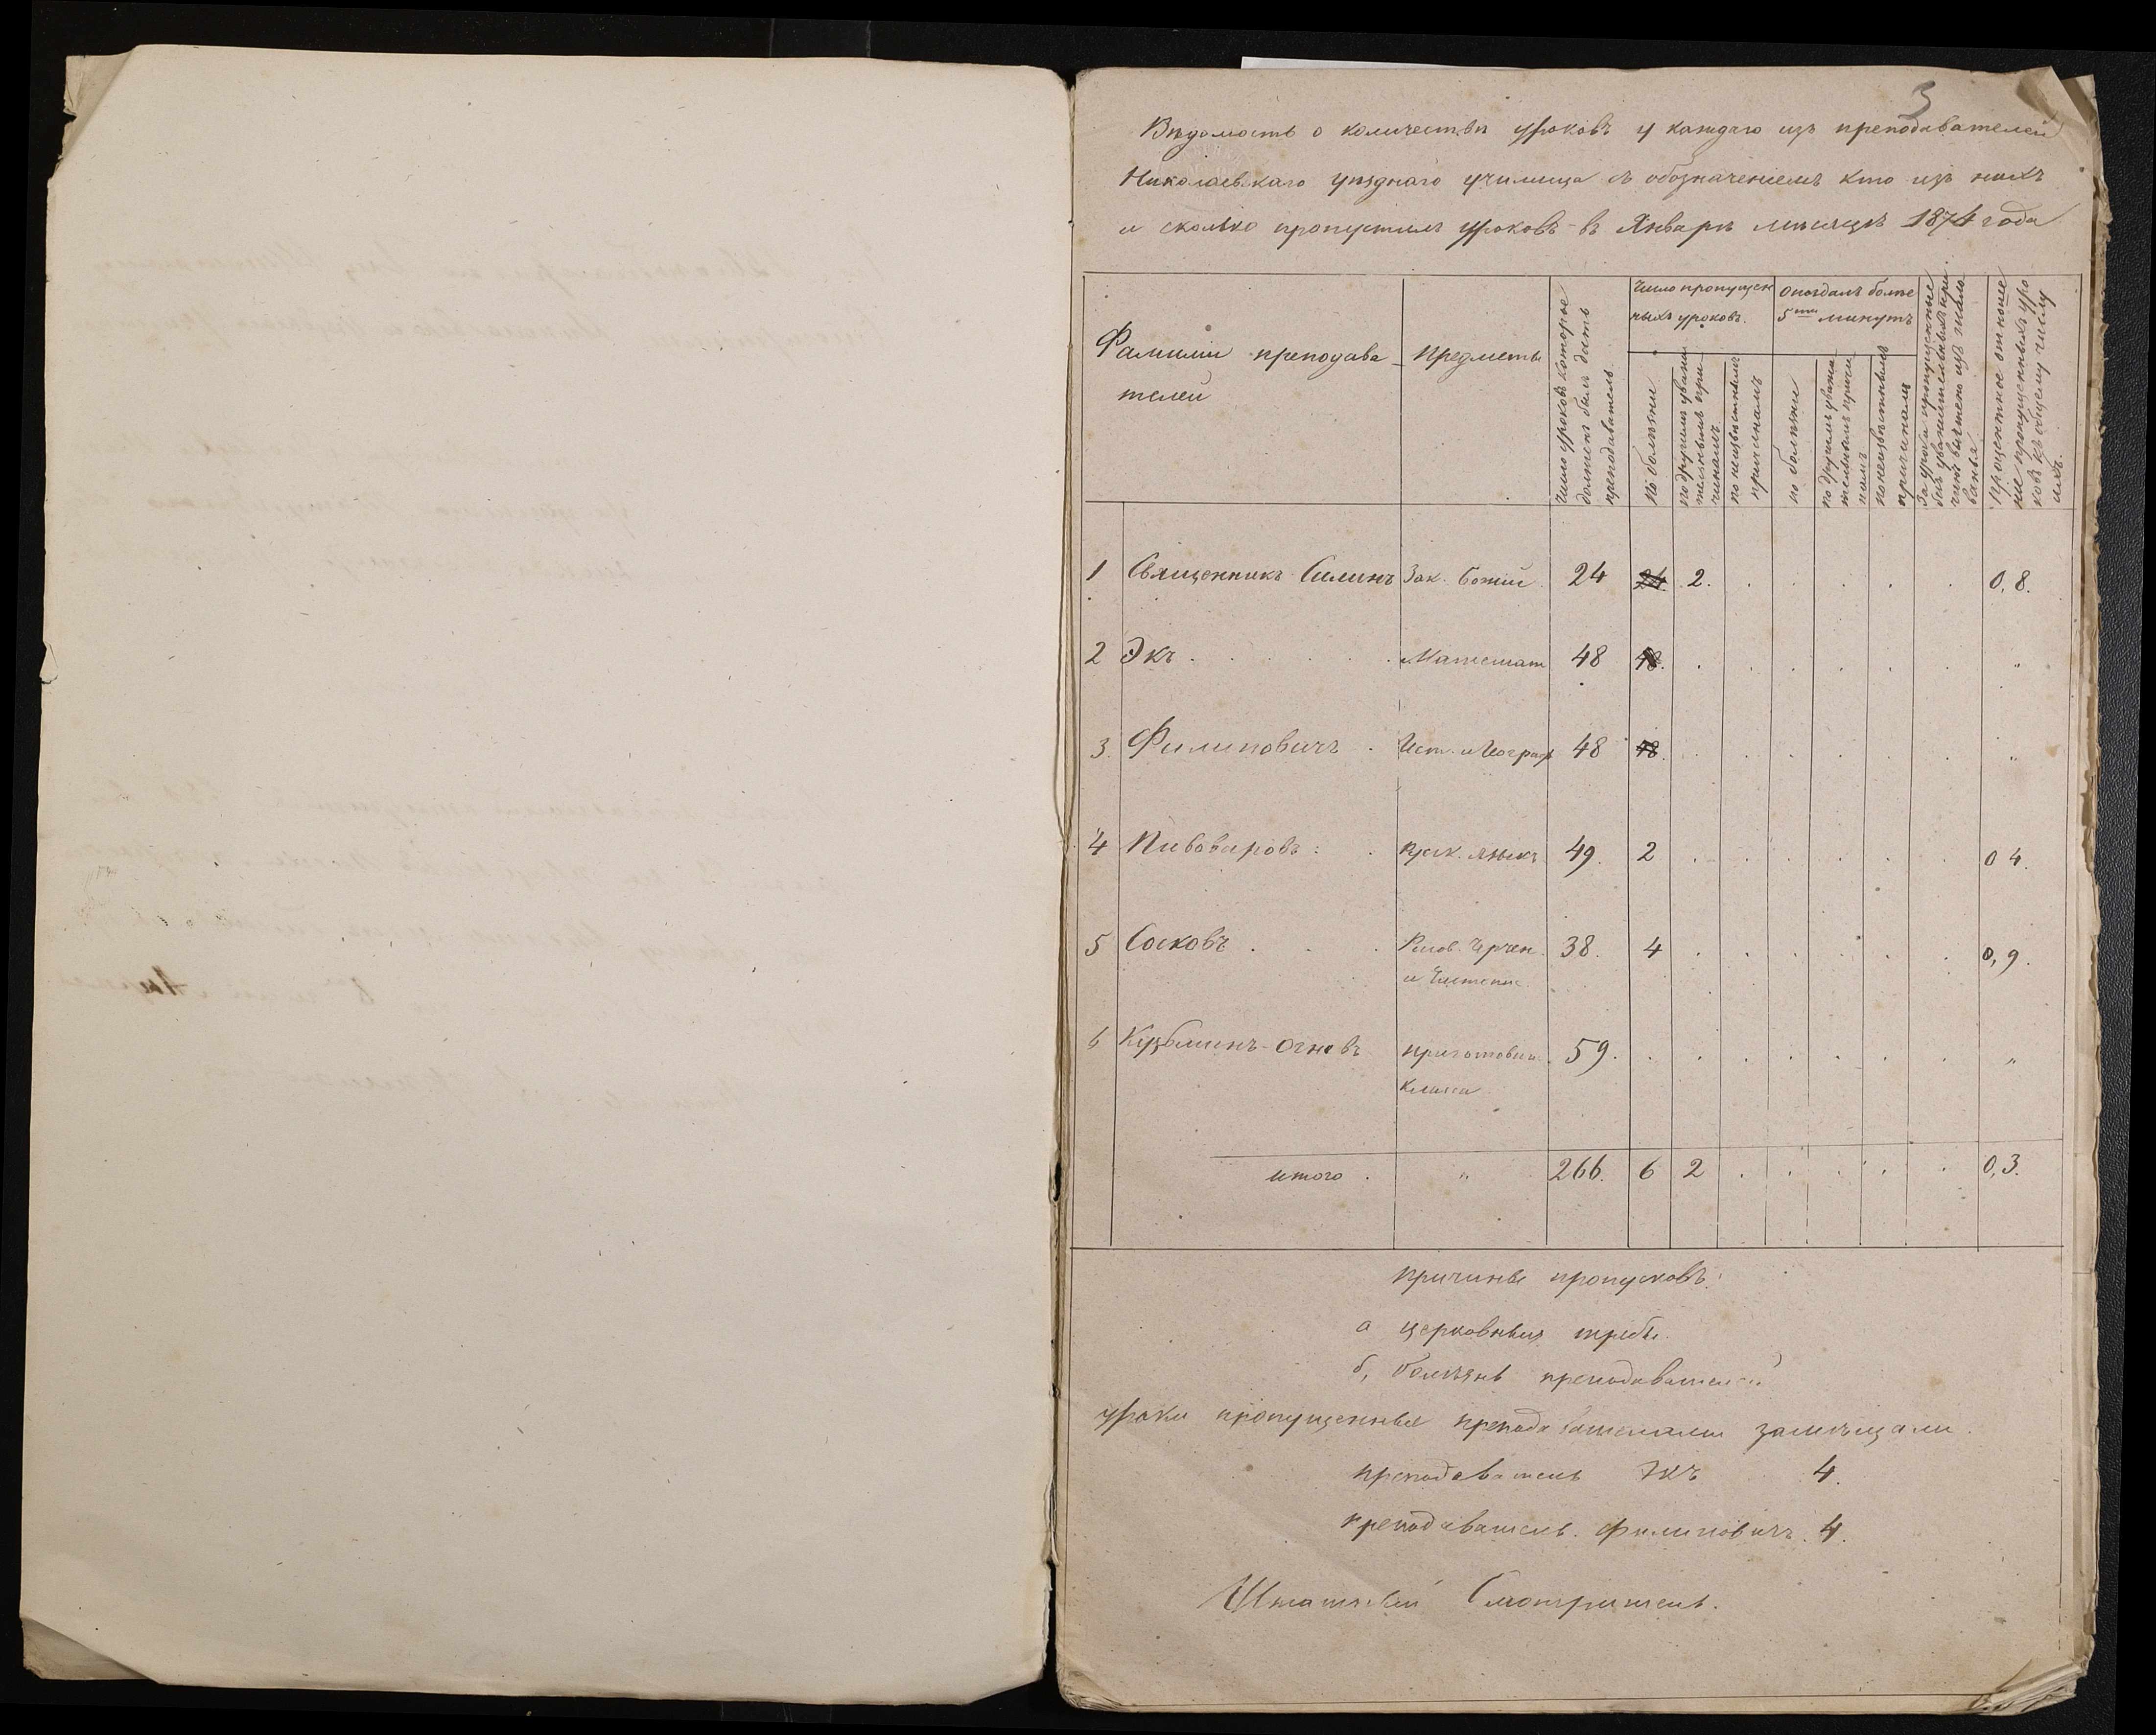 3
Вѣдомость о количествѣ уроковъ у каждаго изъ преподавателей
Николаевскаго уѣзднаго училища съ обозначеніемъ кто изъ нихъ
и сколько пропустилъ уроковъ въ Январѣ мѣсяцѣ 1874 года
Фамиліи преподава-
телей
Предметы
Число уроковъ которое
долженъ былъ дать
преподаватель
Число пропущен
ныхъ уроковъ.
по болѣзни
по другимъ уважи
тельнымъ при
чинамъ
по неизвѣстнымъ
причинамъ
Опоздалъ болѣе
5ти минутъ
по болѣзни
по другимъ уважи
тельнымъ причи
намъ
по неизвѣстнымъ
причинамъ
За уроки пропущенные
безъ уважительныхъ при
чинъ вычтено изъ жало
ванья.
Процентное отноше
ніе пропущенныхъ уро
ковъ къ общему числу
ихъ.
1 Священникъ Силинъ Зак. Божій 24 24 2. 0,8.
2 Экъ . . . . . . Математ 48 48. "
3. Филиповичъ . Ист. и Географ 48 48. "
4 Пивоваровъ . Русск. языкъ 49. 2 0 4.
5 Сосковъ . . . Рисов. Черчен. 38. 4 0,9.
и Чистопис.
6 Кузьминъ-Огневъ приготовит. 59. "
класса
итого . " 266. 6 2 0,3.
Причины пропусковъ:
а церковныя требы.
б, болѣзнь преподавателей
уроки пропущенные преподавателями замѣщали.
преподаватель Экъ 4.
преподаватель. Филиповичъ. 4.
Штатный Смотритель.